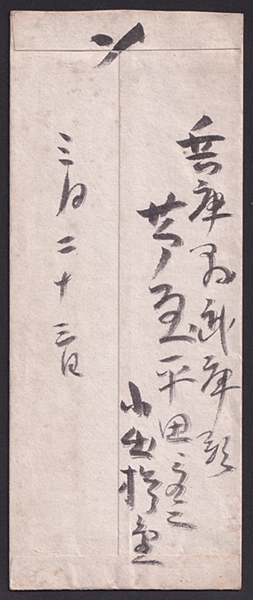 〆
兵庫县武庫郡
芦屋平田
小出楢重
三月二十三日